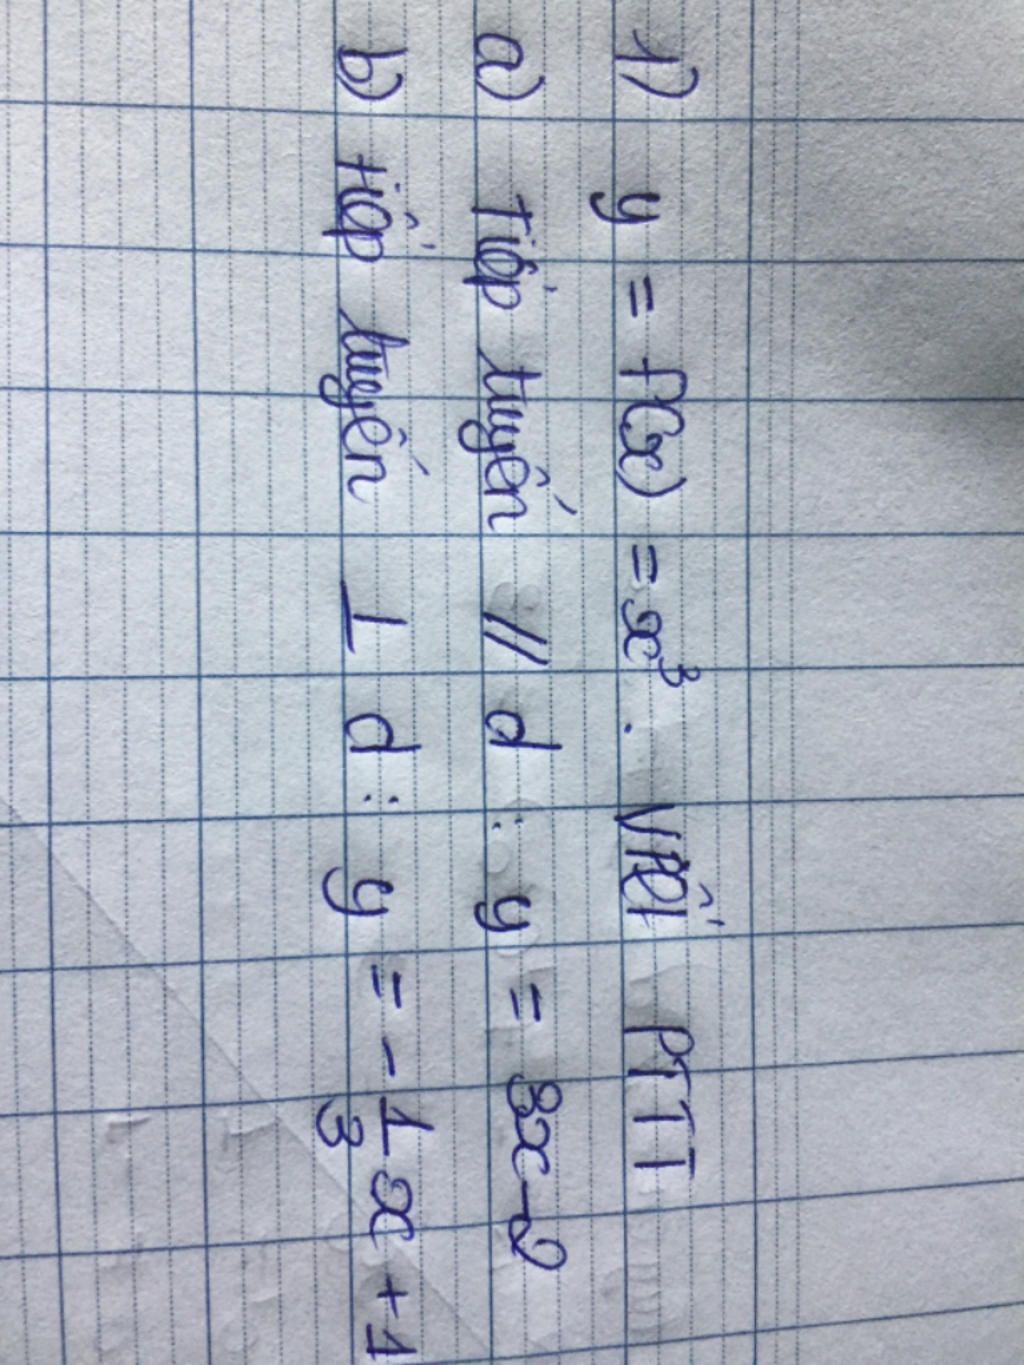 1) y = f(x) = x³. Viết PTTT
a) Tiếp tuyến // d : y = 3x-2
b) tiếp tuyến ⊥ d : y = -1/3 x + 1